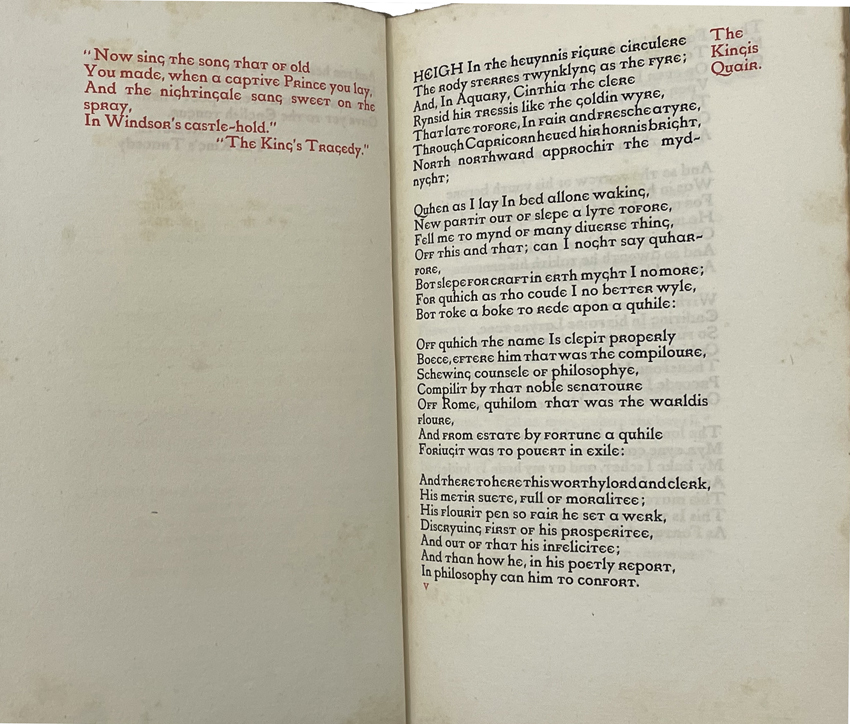 "Now sing the song that of old
You made, when a captive Prince you lay,
And the nightingale sang sweet on the
spray,
In Windsor's castle-hold."
"The King's Tragedy."
The
Kingis
Quair.
HEIGH In the heuynnis figure circulere
The rody sterres twynklyng as the fyre;
And, In Aquary, Cinthia the clere
Rynsid hir tressis like the goldin wyre,
That late tofore, In fair and fresche atyre,
Through Capricorn heued hir hornis bright,
North northward approchit the myd-
nyght;
Quhen as I lay In bed allone waking,
New partit out of slepe a lyte tofore,
Fell me to mynd of many diuerse thing,
Off this and that; can I noght say quhar-
fore,
Bot slepe for craft in erth myght I no more;
For quhich as tho coude I no better wyle,
Bot toke a boke to rede apon a quhile:
Off quhich the name Is clepit properly
Boece, eftere him that was the compiloure,
Schewing counsele of philosophye,
Compilit by that noble senatoure
Off Rome, quhilom that was the warldis
floure,
And from estate by fortune a quhile
Foriugit was to pouert in exile:
And there to here this worthy lord and clerk,
His metir suete, full of moralitee;
His flourit pen so fair he set a werk,
Discryuing first of his prosperitee,
And out of that his infelicitee;
And than how he, in his poetly report,
In philosophy can him to confort.
v